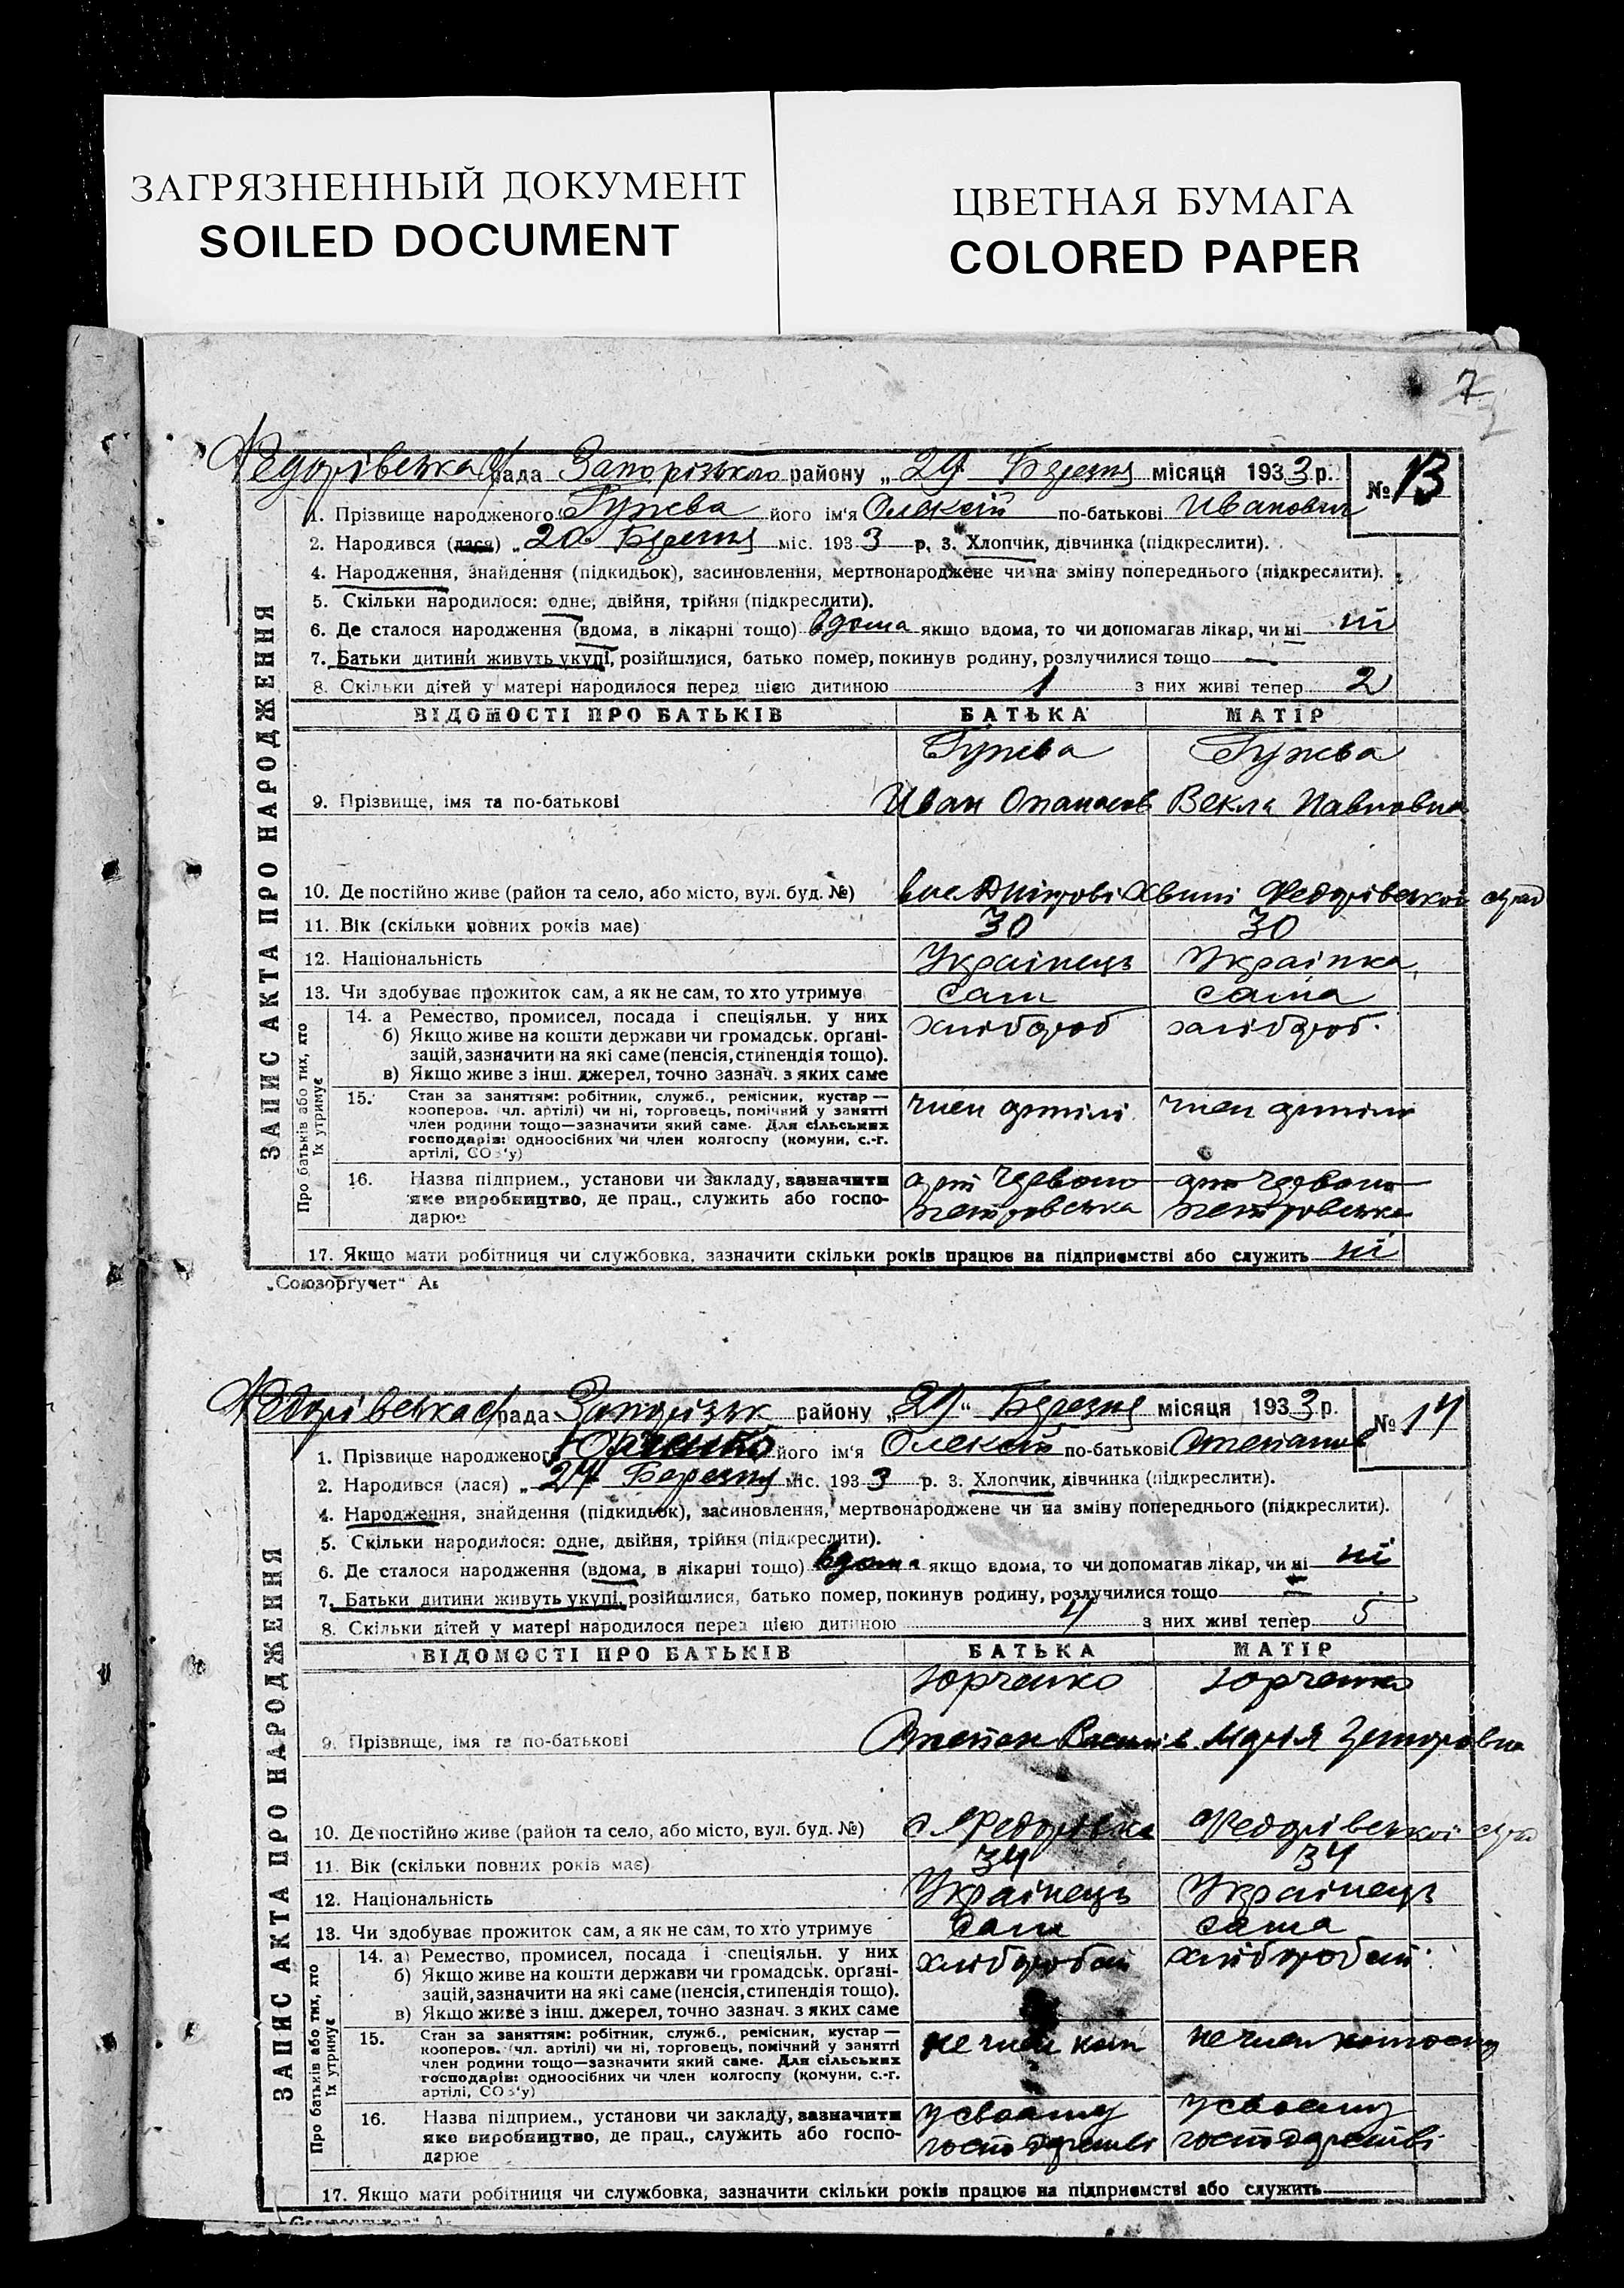 ЗАГРЯЗНЕННЫЙ ДОКУМЕНТ
SOILED DOCUMENT
ЦВЕТНАЯ БУМАГА
COLORED PAPER
7
Федорівська с/рада Запорізького району „29 Березня місяця 1933 р. № 13
1. Прізвище народженого Гужва його ім'я Олексій по-батькові Иванович
2. Народився (лася) „20 Березня міс. 1933 р. 3. Хлопчик, дівчинка (підкреслити).
4. Народження, знайдення (підкидьок), засиновлення, мертвонароджене чи на зміну попереднього (підкреслити).
5. Скільки народилося: одне, двійня, трійня (підкреслити).
6. Де сталося народження (вдома, в лікарні тощо) вдома якщо вдома, то чи допомагав лікар, чи ні ні
7. Батьки дитини живуть укупі, розійшлися, батько помер, покинув родину, розлучилися тощо —
8. Скільки дітей у матері народилося перед цією дитиною 1 з них живі тепер 2
ВІДОМОСТІ ПРО БАТЬКІВ БАТЬКА МАТІР
Гужва Гужва
9. Прізвище, імя та по-батькові Иван Опанасов Векла Павловна
10. Де постійно живе (район та село, або місто, вул. буд. №) Федорівської с/рад
11. Вік (скільки повних років має) 30 30
12. Національність Українець Українка
13. Чи здобуває прожиток сам, а як не сам, то хто утримує сам сама
14. а Ремество, промисел, посада і спеціяльн. у них хлібороб хлібороб.
б) Якщо живе на кошти держави чи громадськ. орґані-
зацій, зазначити на які саме (пенсія, стипендія тощо).
в) Якщо живе з інш. джерел, точно зазнач. з яких саме
15. Стан за заняттям: робітник, служб., ремісник, кустар —
кооперов. (чл. артілі) чи ні, торговець, помічний у занятті член артілі член артілі
член родини тощо—зазначити який саме. Для сільських
господарів: одноосібних чи член колгоспу (комуни, с.-г.
артілі, СОЗ'у)
16. Назва підприєм., установи чи закладу, зазначити арт Червоно арт Червоно
яке виробництво, де прац., служить або госпо- петровська петровська
дарює
17. Якщо мати робітниця чи службовка, зазначити скільки років працює на підприємстві або служить ні
ЗАПИС АКТА ПРО НАРОДЖЕННЯ
Про батьків або тих, хто
їх утримує
„Союзоргучет"
Федорівська с/рада Запорізьк району „29" Березня місяця 1933 р. № 14
1. Прізвище народженого Юрченко його ім'я Олексій по-батькові Степанов
2. Народився (лася) „27 Березня міс. 1933 р. 3. Хлопчик, дівчинка (підкреслити).
4. Народження, знайдення (підкидьок), засиновлення, мертвонароджене чи на зміну попереднього (підкреслити).
5. Скільки народилося: одне, двійня, трійня (підкреслити).
6. Де сталося народження (вдома, в лікарні тощо) вдома якщо вдома, то чи допомагав лікар, чи ні ні
7. Батьки дитини живуть укупі, розійшлися, батько помер, покинув родину, розлучилися тощо —
8. Скільки дітей у матері народилося перед цією дитиною 4 з них живі тепер 5
ВІДОМОСТІ ПРО БАТЬКІВ БАТЬКА МАТІР
Юрченко Юрченко
9. Прізвище, імя та по-батькові Степан Васильів Марія
10. Де постійно живе (район та село, або місто, вул. буд. №) с. Федорівка Федорівської с/рад
11. Вік (скільки повних років має) 34 34
12. Національність Українець Українець
13. Чи здобуває прожиток сам, а як не сам, то хто утримує сам сама
14. а) Ремество, промисел, посада і спеціяльн. у них
б) Якщо живе на кошти держави чи громадськ. орґані-
зацій, зазначити на які саме (пенсія, стипендія тощо).
в) Якщо живе з інш. джерел, точно зазнач. з яких саме
15. Стан за заняттям: робітник, служб., ремісник, кустар —
кооперов. (чл. артілі) чи ні, торговець, помічний у занятті не член кол не член колгоспу
член родини тощо—зазначити який саме. Для сільських
господарів: одноосібних чи член колгоспу (комуни, с.-г.
артілі, СОЗ'у)
16. Назва підприєм., установи чи закладу, зазначити у своаму у своєму
яке виробництво, де прац., служить або госпо- господарстві господарстві
дарює
17. Якщо мати робітниця чи службовка, зазначити скільки років працює на підприємстві або служить
ЗАПИС АКТА ПРО НАРОДЖЕННЯ
Про батьків або тих, хто
їх утримує